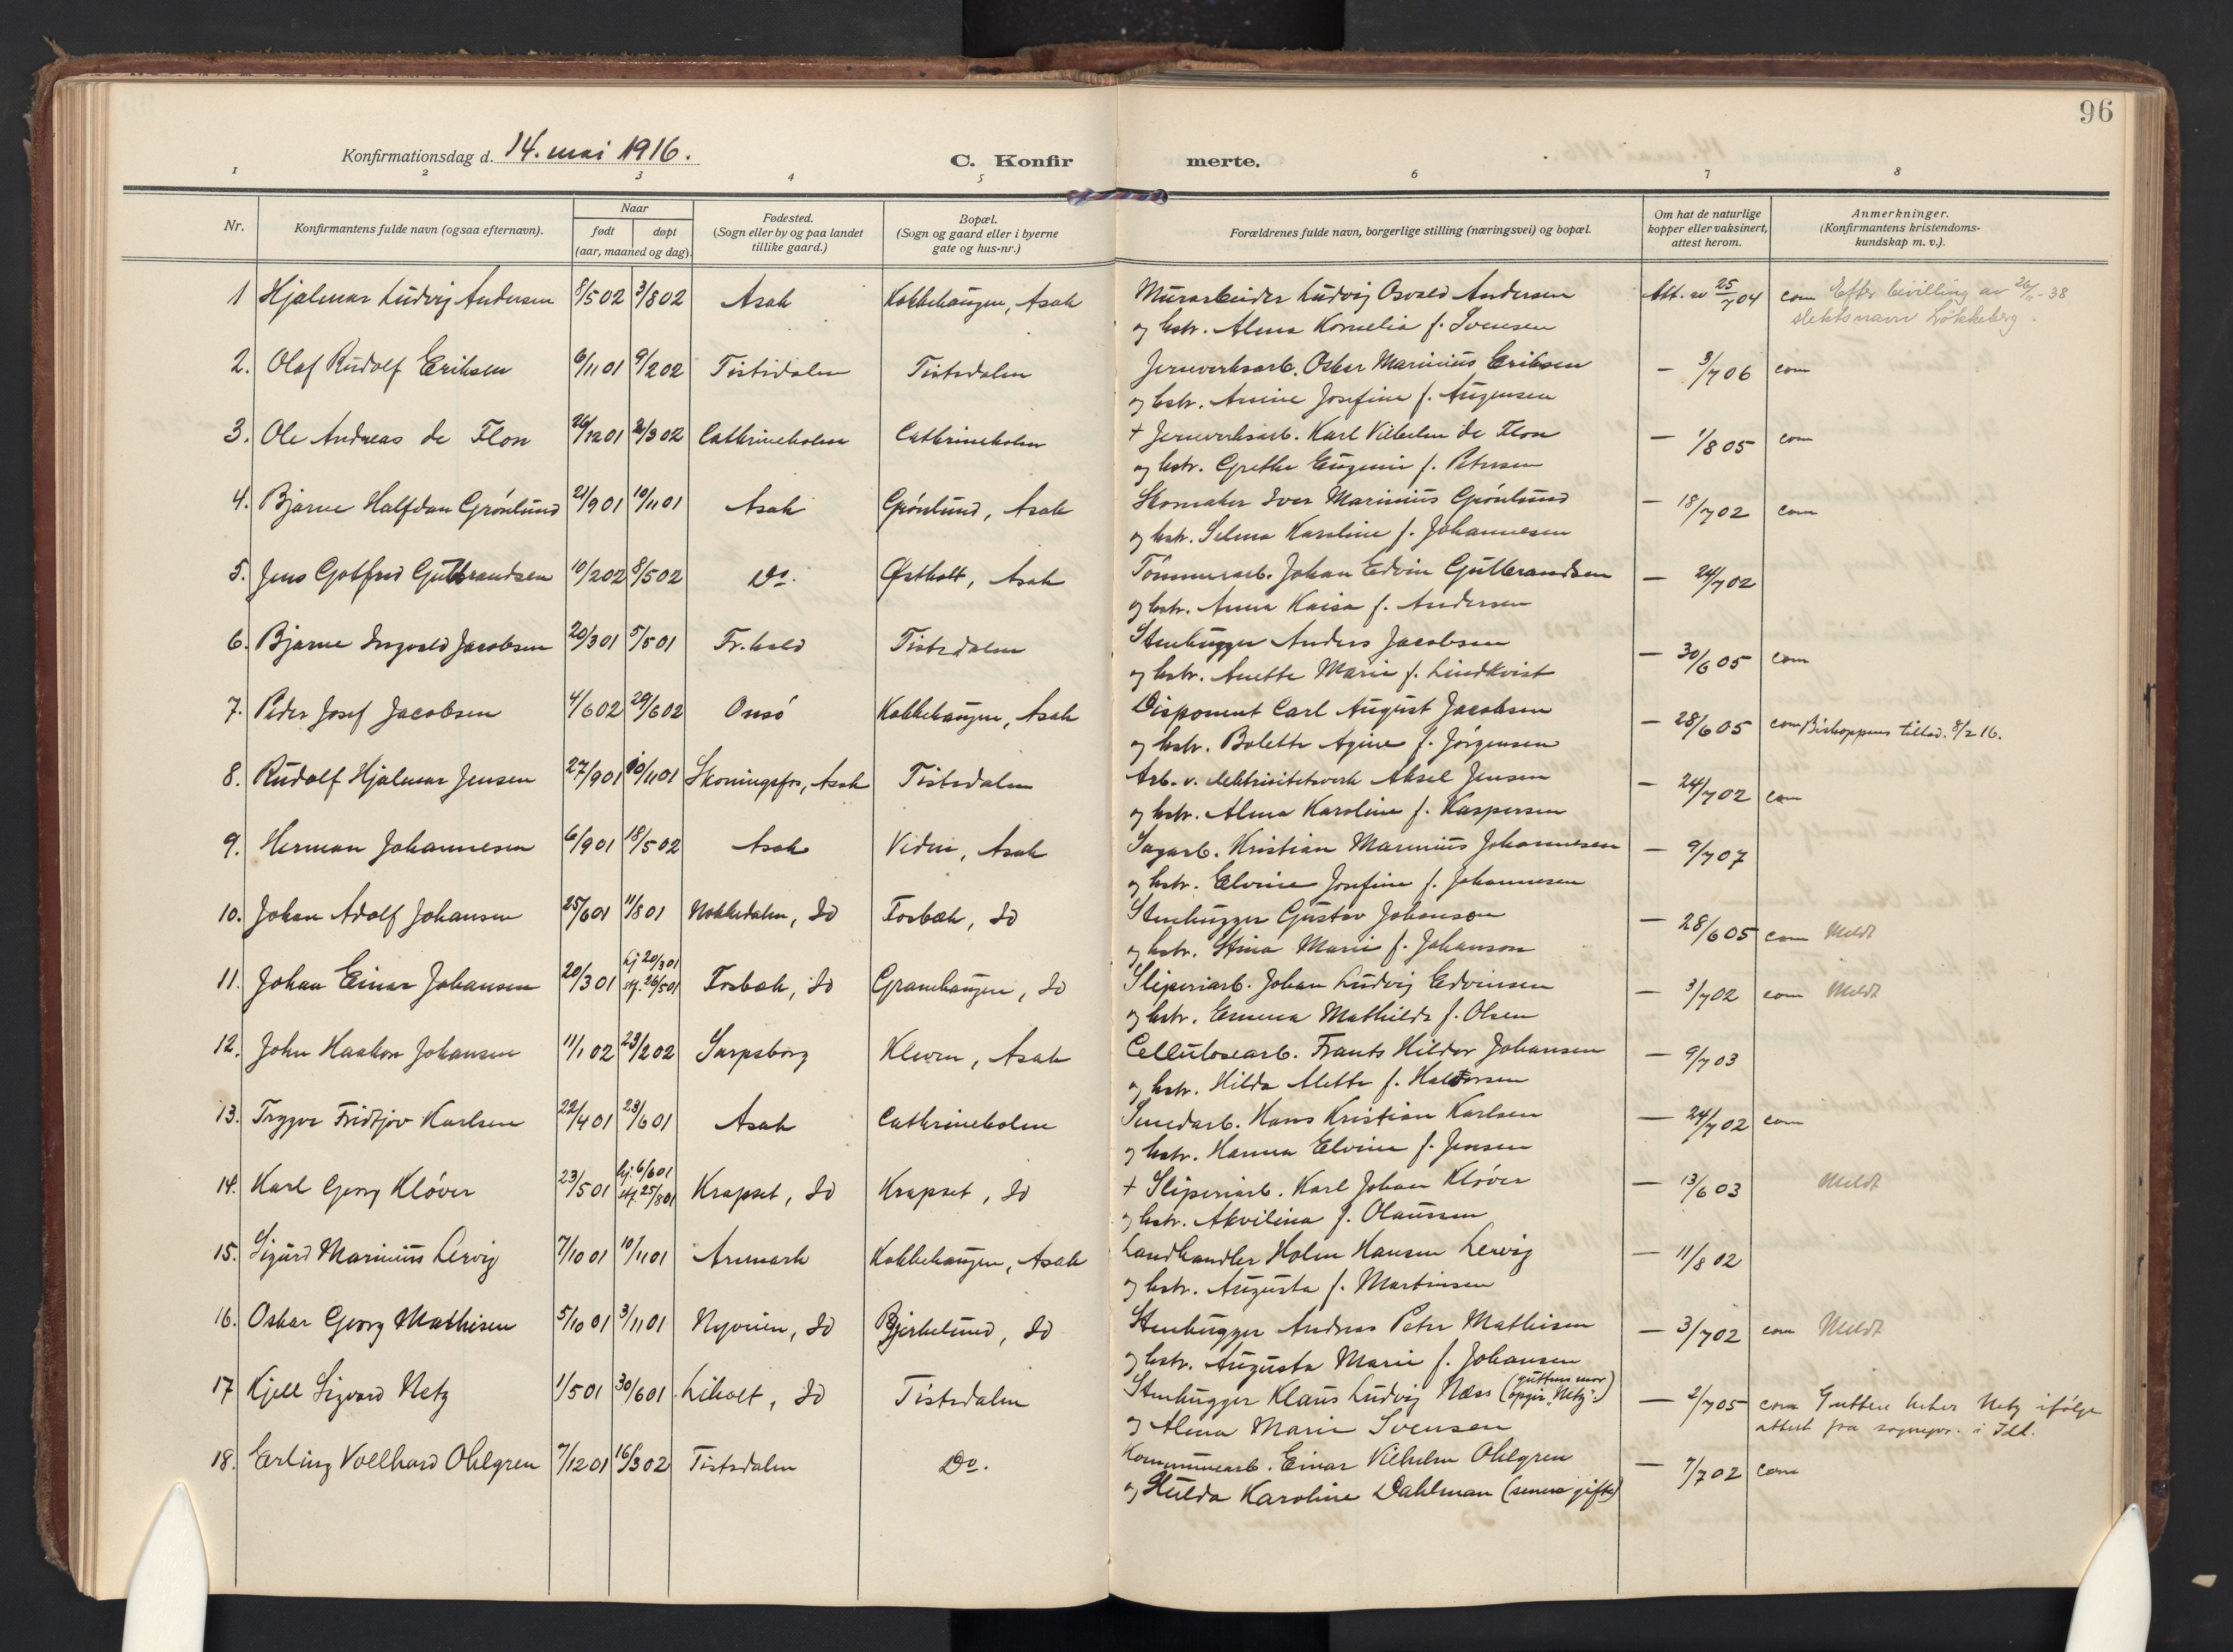 96
Konfirmationsdag d. 14. mai 1916.
C. Konfir merte.
1 2 3 4 5 6 7 8
Nr.
Konfirmantens fulde navn (ogsaa efternavn).
Naar
født døpt
(aar, maaned og dag).
Fødested.
(Sogn eller by og paa landet
tillike gaard.)
Bopæl.
(Sogn og gaard eller i byerne
gate og hus-nr.)
Forældrenes fulde navn, borgerlige stilling (næringsvei) og bopæl.
Om hat de naturlige
kopper eller vaksinert,
attest herom.
Anmerkninger.
(Konfirmantens kristendoms-
kundskap m. v.).
1 Hjalmar Ludvig Andersen 8/5 02 3/8 02 Asak Kokkehaugen, Asak Murarbeider Ludvig Osvald Andersen Att. av 25/7 04 com Efter bevilling av 26/11-38
og hstr. Alma Kornelia f. Svensen slektsnavn Løkkeberg.
2. Olaf Rudolf Eriksen 6/11 01 9/2 02 Tistedalen Tistedalen Jernverksarb. Oskar Marinius Eriksen — 3/7 06 com
og hstr. Amine Josefine f. Augensen
3. Ole Andreas de Flon 26/12 01 2/3 02 Cathrineholm Cathrineholm + Jernverksarb. Karl Vilhelm de Flon — 1/8 05 com
og hstr. Grethe Eugenie f. Petersen
4. Bjarne Halfdan Grönlund 21/9 01 10/11 01 Asak Grönlund, Asak Skomaker Iver Marinius Grönlund — 18/7 02 com
og hstr. Selma Karoline f. Johannesen
5. Jens Gotfred Gulbrandsen 10/2 02 8/5 02 Do. Østholt, Asak Tömmerarb. Johan Edvin Gulbrandsen — 24/7 02
og hstr. Anna Kaisa f. Andersen
6. Bjarne Ingvald Jacobsen 20/3 01 5/5 01 Fr.hald Tistedalen Stenhugger Anders Jacobsen — 30/6 05 com
og hstr. Anette Marie f. Lindkvist
7. Peder Josef Jacobsen 4/6 02 29/6 02 Onsö Kokkehaugen, Asak Disponent Carl August Jacobsen — 28/6 05 com Biskoppens tillad. 8/2 16.
og hstr. Bolette Agine f. Jörgensen
8. Rudolf Hjalmar Jensen 27/9 01 10/11 01 Skoningsfos, Asak Tistedalen Arb. v. elektrisitetsverk Aksel Jensen — 24/7 02 com
og hstr. Alma Karoline f. Kaspersen
9. Herman Johannesen 6/9 01 18/5 02 Asak Veden, Asak Sagarb. Kristian Marinius Johannesen — 9/7 07
og hstr. Elvine Josefine f. Johannesen
10. Johan Adolf Johansen 25/6 01 11/8 01 Nokkedalen, Id Torbæk, Id Stenhugger Gustav Johanson — 28/6 05 com Meldt
og hstr. Stina Marie f. Johanson
11. Johan Einar Johansen 20/3 01 hj 20/3 01 stf. 26/5 01 Torbæk, Id Granehaugen, Id Sliperiarb. Johan Ludvig Edvinsen — 3/7 02 com Meldt
og hstr. Emma Mathilde f. Olsen
12. John Haakon Johansen 11/1 02 23/2 02 Sarpsborg Kleven, Asak Cellulosearb. Frants Hildor Johansen — 9/7 03
og hstr. Hilda Alette f. Haldorsen
13. Trygve Fridtjov Karlsen 22/4 01 23/6 01 Asak Cathrineholm Smedarb. Hans Kristian Karlsen — 24/7 02 com
og hstr. Hanna Elvine f. Jensen
14. Karl Georg Klöver 23/5 01 hj. 6/6 01 stf. 25/8 01 Krapset, Id Krapset, Id + Sliperiarb. Karl Johan Klöver — 13/6 03 Meldt
og hstr. Akvilina f. Olaussen
15. Sigurd Marinius Lervig 7/10 01 10/11 01 Aremark Kokkehaugen, Asak Landhandler Holm Hansen Lervig — 11/8 02
og hstr. Augusta f. Martinsen
16. Oskar Georg Mathisen 5/10 01 3/11 01 Nyveien, Id Bjerkelund, Id Stenhugger Andreas Peter Mathisen — 3/7 02 com Meldt
og hstr. Augusta Marie f. Johansen
17 Kjell Sigvard Netz 1/5 01 30/6 01 Liholt, Id Tistedalen Stenhugger Klaus Ludvig Næss (guttens mor opgir "Netz") — 2/7 05 com Gutten heter Netz ifølge
og Alma Marie Svensen attest fra sognepr. i Idd.
18. Erling Vollhard Ohlgren 7/12 01 16/3 02 Tistedalen Do. Kommunearb. Einar Vilhelm Ohlgren — 7/7 02 com
og Hulda Karoline Dahlman (senere gifte)